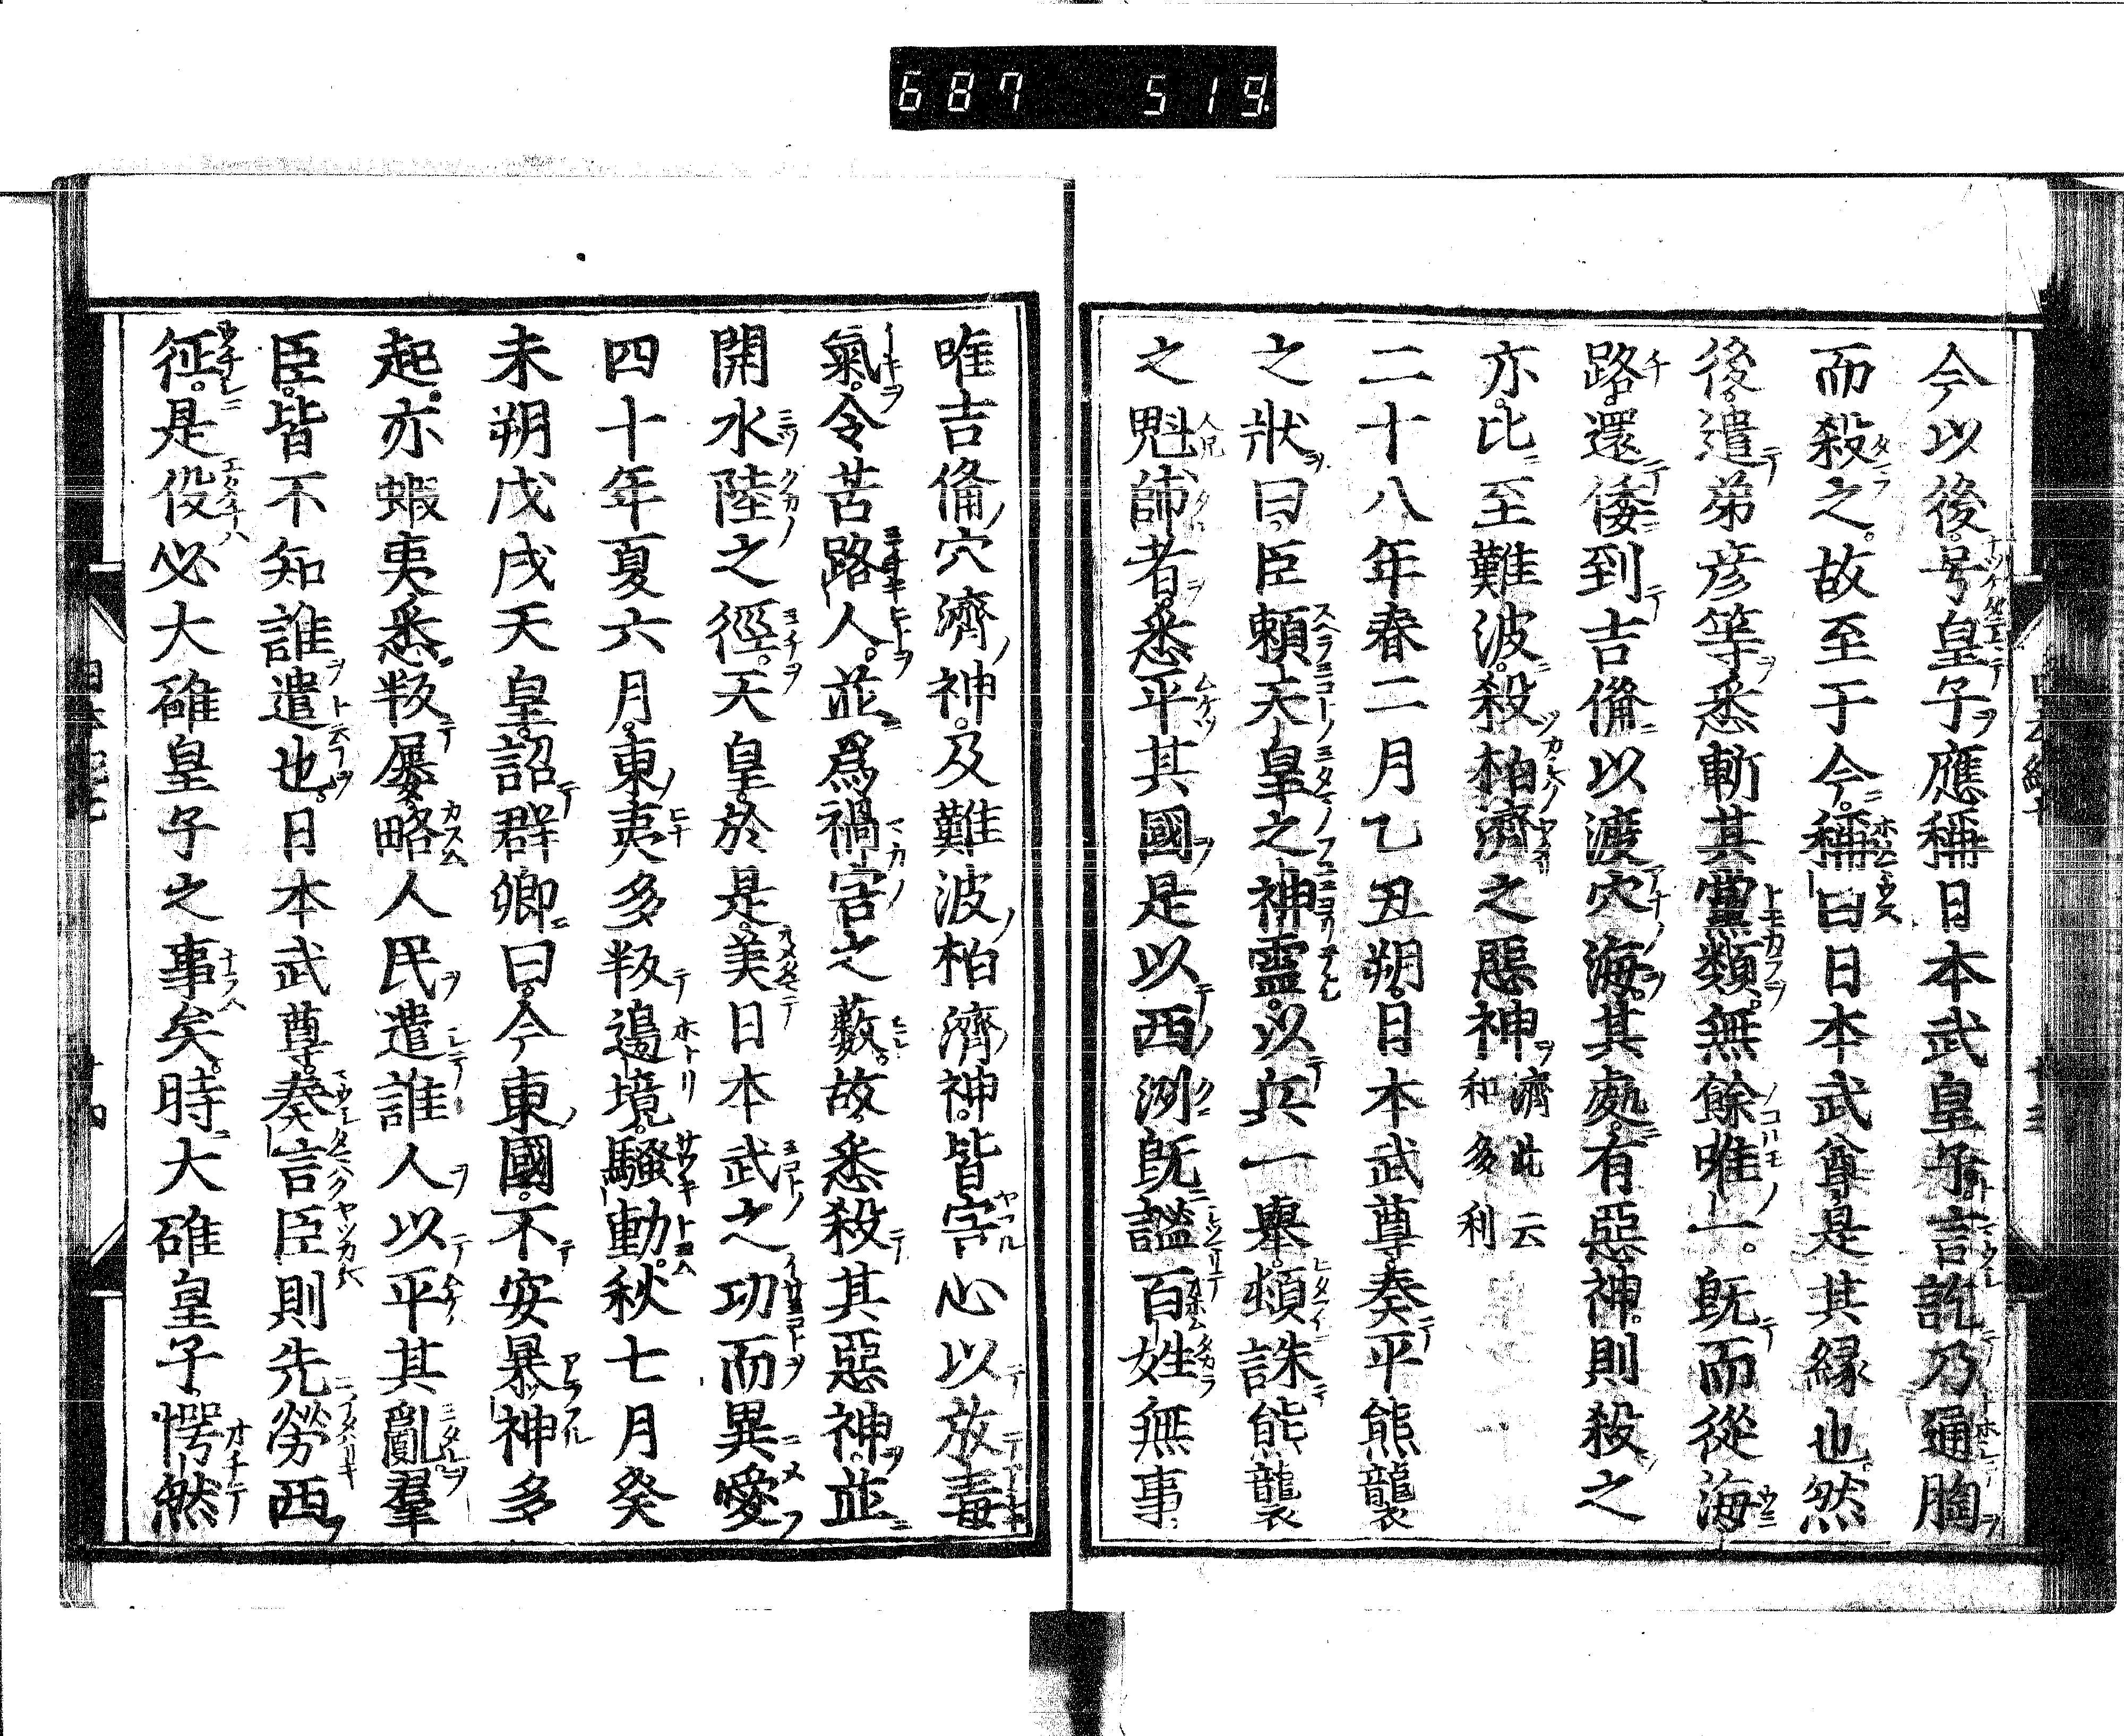 687 519
今以後号皇子應稱日本武皇子言訖乃通胸
而殺之故至于今稱曰日本武尊是其縁也然
後遣弟彦等悉斬其黨類無餘唯一既而從海
路還倭到吉備以渡穴海其處有惡神則殺之
亦比至難波殺柏濟之惡神濟此云和多利
二十八年春二月乙丑朔日本武尊奏平熊襲
之狀曰臣賴天皇之神靈以兵一舉頓誅熊襲
之魁帥者悉平其國是以西洲既謐百姓無事
唯吉備穴濟神及難波柏濟神皆害心以放毒
氣令苦路人並爲禍害之藪故悉殺其惡神並
開水陸之徑天皇於是美日本武之功而異愛
四十年夏六月東夷多叛邊境騷動秋七月癸
未朔戊戌天皇詔群卿曰今東國不安暴神多
起亦蝦夷悉叛屢略人民遣誰人以平其亂羣
臣皆不知誰遣也日本武尊奏言臣則先勞西
征是役必大碓皇子之事矣時大碓皇子愕然